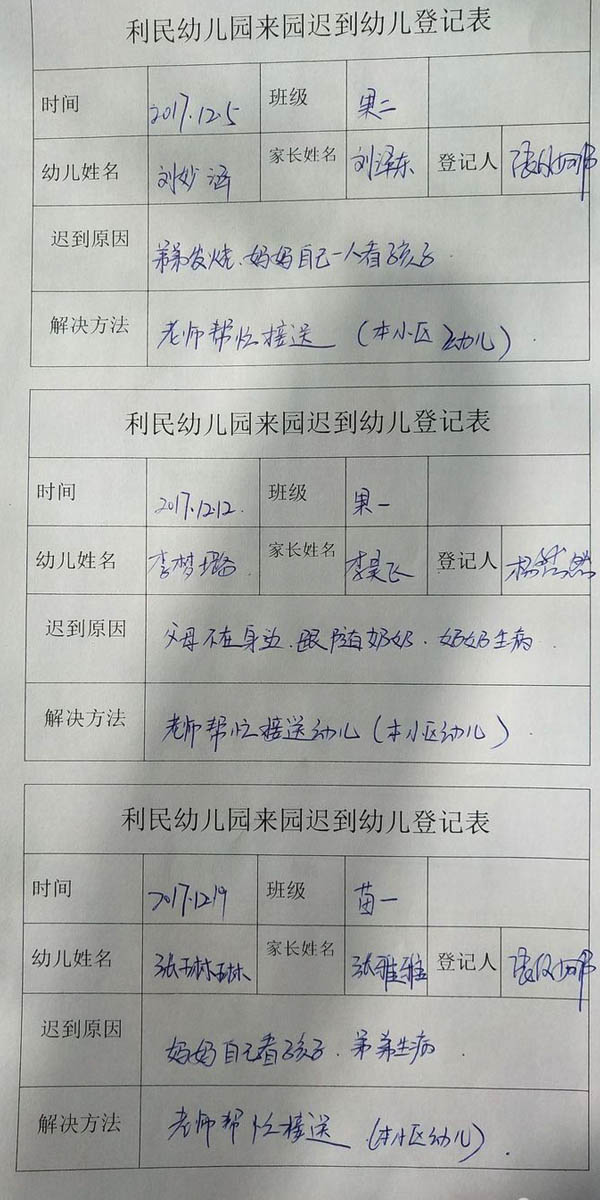 利民幼儿园来园迟到幼儿登记表
时间 2017.12.5 班级 果二
幼儿姓名 刘妙涵 家长姓名 刘泽东 登记人
迟到原因 弟弟发烧、妈妈自己一人看孩子.
解决方法 老师帮忙接送 (本小区幼儿)
利民幼儿园来园迟到幼儿登记表
时间 2017.12.12. 班级 果一
幼儿姓名 李梦璐 家长姓名 李昊飞 登记人
迟到原因 父母不在身边、跟随奶奶.奶奶生病.
解决方法 老师帮忙接送幼儿(本小区幼儿).
利民幼儿园来园迟到幼儿登记表
时间 2017.12.19 班级 苗一
幼儿姓名 张琳琳 家长姓名 登记人
迟到原因 妈妈自己看孩子.弟弟生病.
解决方法 老师帮忙接送.(本小区幼儿).